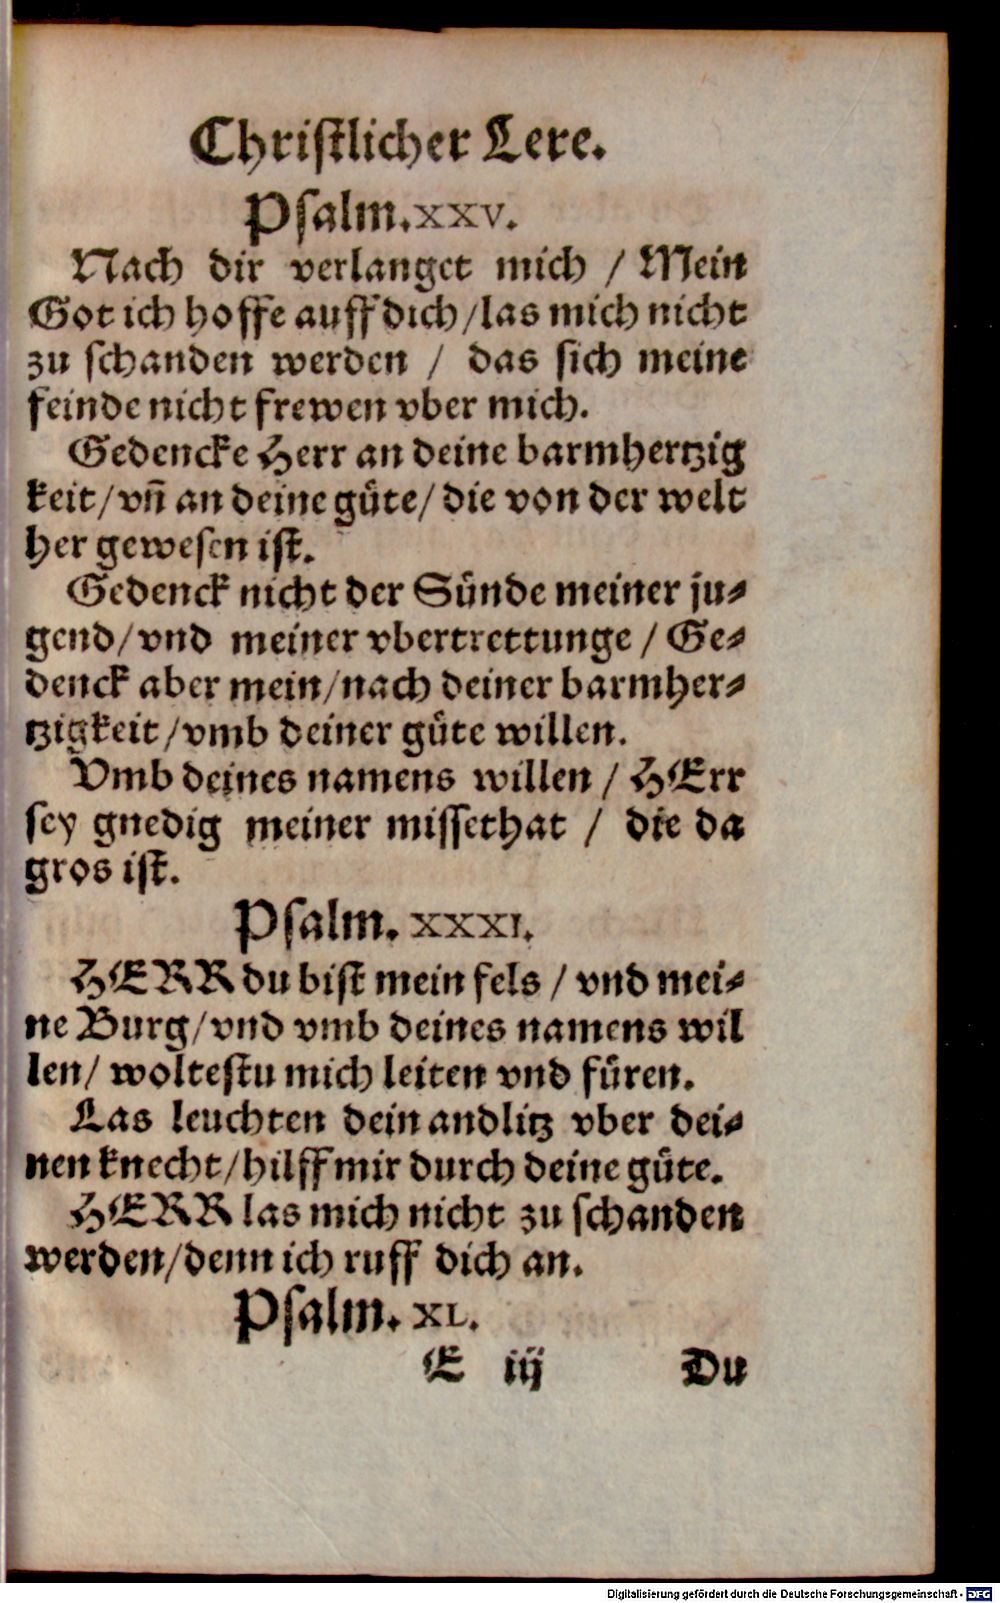 Christlicher Lere.
Psalm. XXV.
Nach dir verlanget mich / Mein
Got ich hoffe auff dich / las mich nicht
zu schanden werden / das sich meine
feinde nicht frewen vber mich.
Gedencke Herr an deine barmhertzig
keit / vñ an deine güte / die von der welt
her gewesen ist.
Gedenck nicht der Sünde meiner ju⸗
gend / vnd meiner vbertrettunge / Ge⸗
denck aber mein / nach deiner barmher⸗
tzigkeit / vmb deiner güte willen.
Vmb deines namens willen / HErr
sey gnedig meiner missethat / die da
gros ist.
Psalm. XXXI.
HERR du bist mein fels / vnd mei⸗
ne Burg / vnd vmb deines namens wil
len / woltestu mich leiten vnd füren.
Las leuchten dein andlitz vber dei⸗
nen knecht / hilff mir durch deine güte.
HERR las mich nicht zu schanden
werden / denn ich ruff dich an.
Psalm. XL.
E iij Du
Digitalisierung gefördert durch die Deutsche Forschungsgemeinschaft - DFG